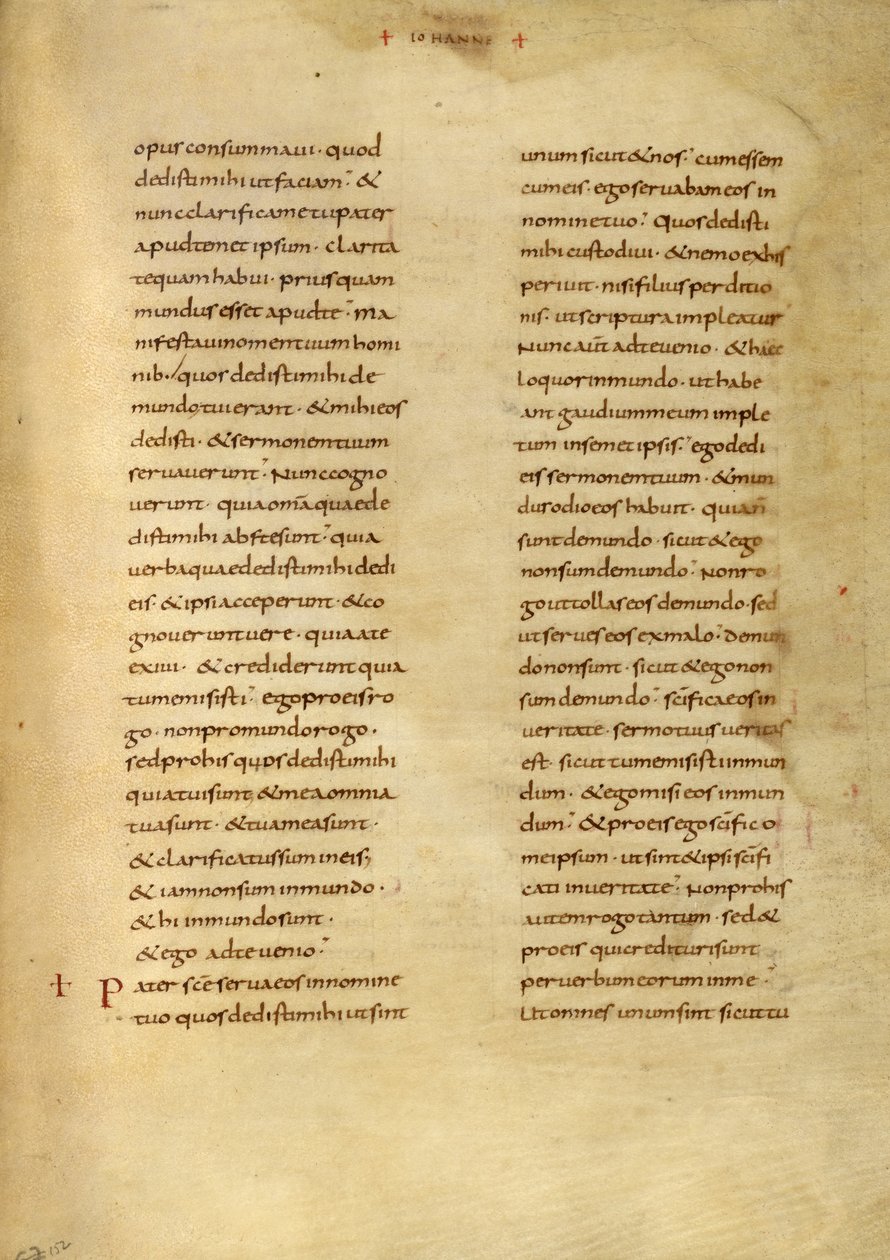 + IOHANNE +
opus consummaui · quod
dedisti mihi ut faciam · &
nunc clarifica me tu pater
apud temet ipsum · clarita
te quam habui · prius quam
mundus esset apud te · ma
nifestaui nomen tuum homi
nib · quos dedisti mihi de
mundo tui erant · & mihi eos
dedisti · & sermonem tuum
seruauerunt · Nunc cogno
uerunt · quia om̄a quae de
disti mihi abs te sunt · quia
uerba quae dedisti mihi dedi
eis · & ipsi acceperunt · & co
gnouerunt uere · quia a te
exiui · & crediderunt quia
tu me misisti · ego pro eis ro
go · non pro mundo rogo ·
sed pro his quos dedisti mihi
quia tui sunt & mea omnia
tua sunt · & tua mea sunt ·
& clarificatus sum in eis ;
& iam non sum in mundo ·
& hi in mundo sunt ·
& ego ad te uenio ·
+ Pater sc̄e serua eos in nomine
tuo quos dedisti mihi ut sint
unum sicut & nos · cum essem
cum eis · ego seruabam eos in
nomine tuo · Quos dedisti
mihi custodiui · & nemo ex his
periuit · nisi filius perditio
nis · ut scriptura impleatur
Nunc aut̄ ad te uenio · & haec
loquor in mundo · ut habe
ant gaudium meum imple
tum in semet ipsis · ego dedi
eis sermonem tuum · & mun
dus odio eos habuit · quia n̄
sunt de mundo · sicut & ego
non sum de mundo · Non ro
go ut tollas eos de mundo · sed
ut serues eos ex malo · De mun
do non sunt · sicut & ego non
sum de mundo · sc̄ifica eos in
ueritate · sermo tuus ueritas
est · sicut tu me misisti in mun
dum · & ego misi eos in mun
dum · & pro eis ego sc̄ifico
me ipsum · ut sint & ipsi sc̄ifi
cati in ueritate · Non pro his
autem rogo tantum · sed &
pro eis qui credituri sunt
per uerbum eorum in me ·
Ut omnes unum sint sicut tu
152